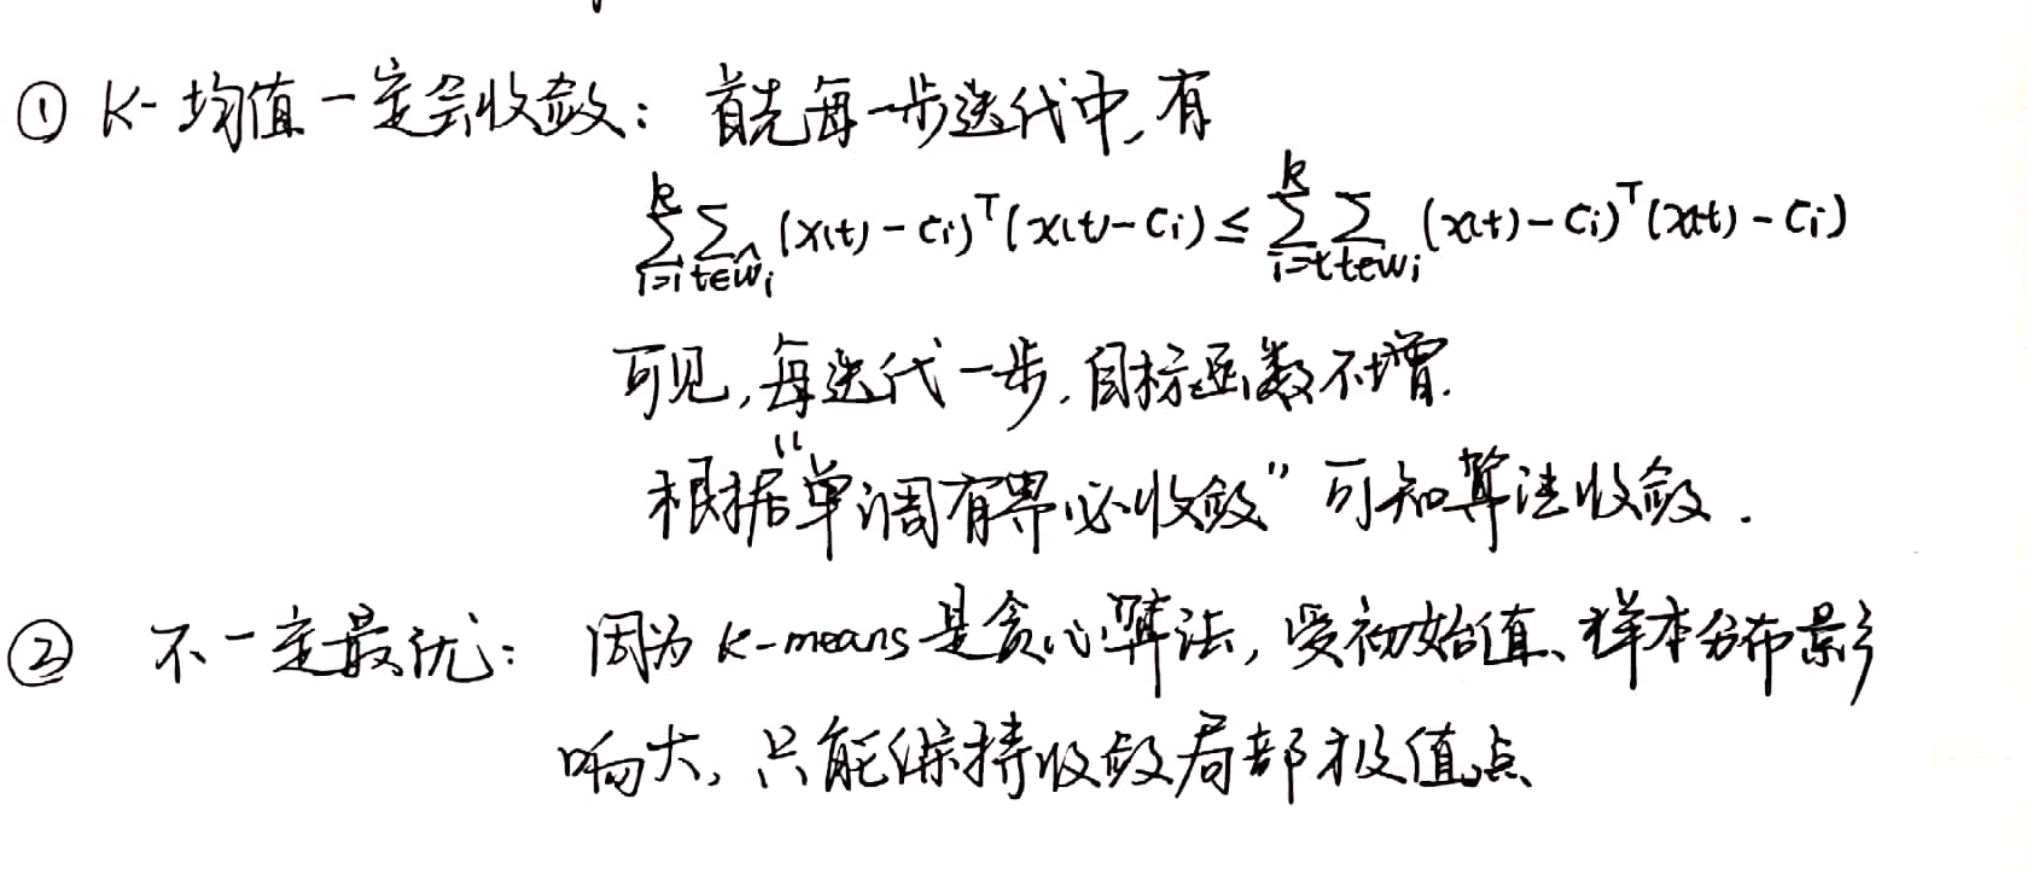 ① K-均值一定会收敛：首先每一步迭代中,有
$\sum_{i=1}^{k}\sum_{t∈\hat{w}_i}(x(t)-c_i)^T(x(t)-c_i)≤\sum_{i=1}^{k}\sum_{t∈w_i}(x(t)-c_i)^T(x(t)-c_i)$
可见,每迭代一步,目标函数不增.
根据“单调有界必收敛”可知算法收敛.
② 不一定最优：因为k-means是贪心算法,受初始值、样本分布影
响大,只能保持收敛局部极值点、